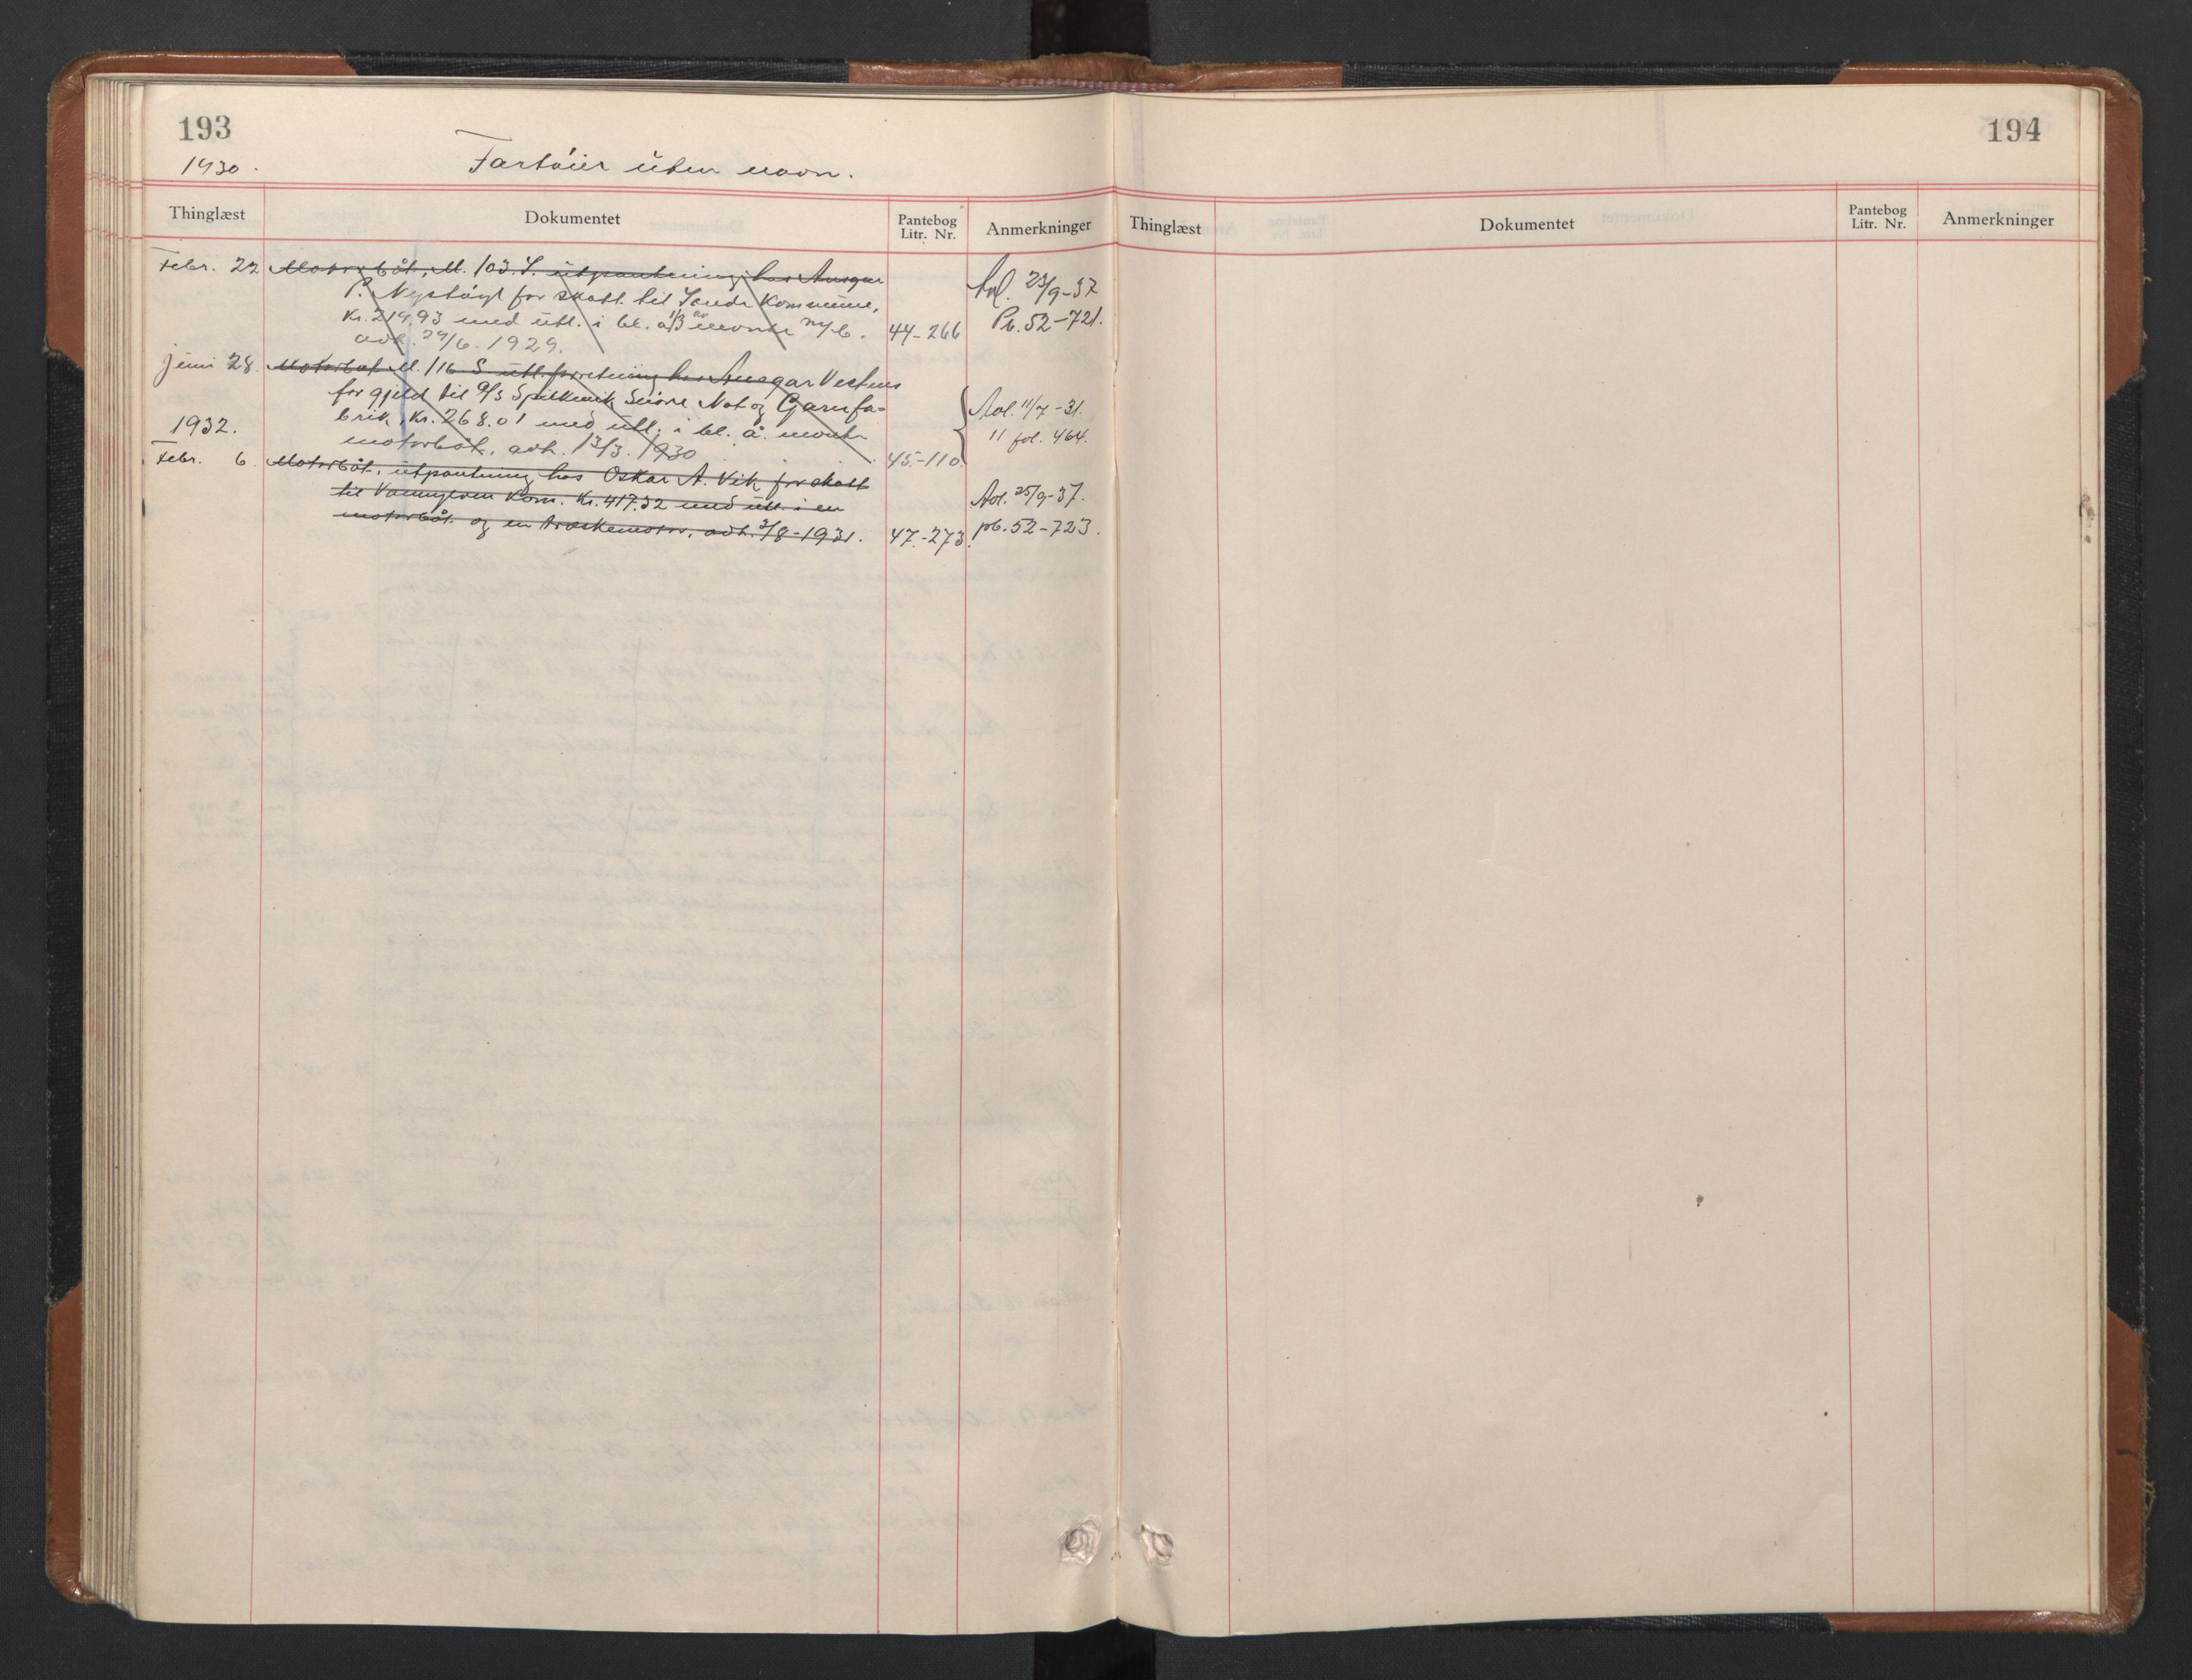 193
1930.
Fartöier uten navn.
Thinglæst Dokumentet Pantebog Litr. Nr. Anmerkninger
Febr. 22 Motorbåt, M. 103. S. utpantning hos Ansgar
P. Nystöyl for skatt til Sande Kommune,
Kr. 219,93 med utl. i bl. a. 1/3 av
avh. 29/6. 1929. 44-266
Avl. 23/9-37
Pb. 52-721.
Juni 28. Motorbåt M. 116 S utl.forretning hos Ansgar Vestnes
for gjeld til A/S Spilkevik Snöre Not og Garnfa-
brik, Kr. 268.01 med utl. i bl. a.
motorbåt, avh. 13/3. 1930 45-110
Avl. 11/7-31.
11 fol. 464.
1932.
Febr. 6. Motorbåt, utpantning hos Oskar A. Vik for skatt
til Vannylven Kom. Kr. 417.32 med utl. i en
motorbåt og en trækkemotor, avh. 3/8-1931. 47-273.
Avl. 25/9-37.
pb. 52-723.
194
Thinglæst Dokumentet Pantebog Litr. Nr. Anmerkninger